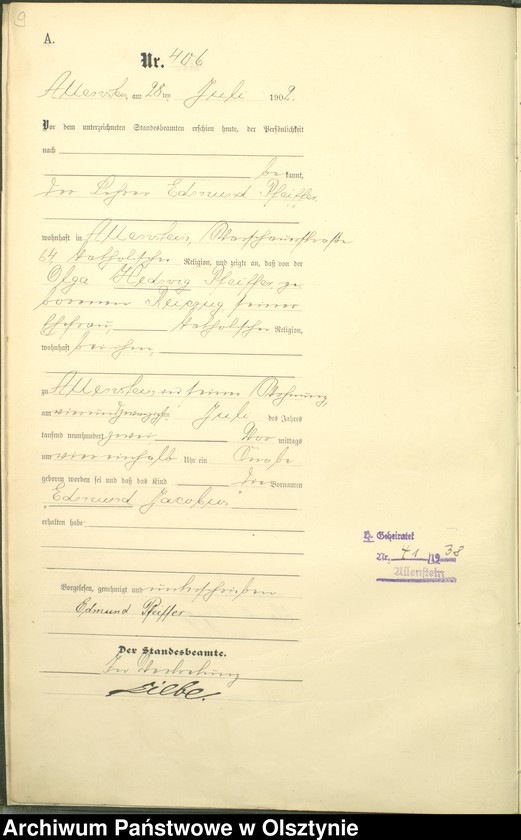 9
A.
Nr. 406
Allenstein, am 28ten Juli 1902.
Vor dem unterzeichneten Standesbeamten erschien heute, der Persönlichkeit
nach
bekannt,
der Lehrer Edmund Pfeiffer,
wohnhaft in Allenstein, Warschauerstraße
64 katholischer Religion, und zeigte an, daß von der
Olga Hedwig Pfeiffer ge
borenen seiner
Ehefrau, katholischer Religion,
wohnhaft bei ihm,
zu Allenstein in seiner Wohnung,
am vierundzwanzigsten Juli des Jahres
tausend neunhundert zwei Vor mittags
um vier einhalb Uhr ein Knabe
geboren worden sei und daß das Kind die Vornamen
"Edmund Jacobus"
erhalten habe
Vorgelesen, genehmigt und unterschrieben
Edmund Pfeiffer
Der Standesbeamte.
In Vertretung
Geheiratet
Nr. 41/1938
Allenstein
Archiwum Państwowe w Olsztynie